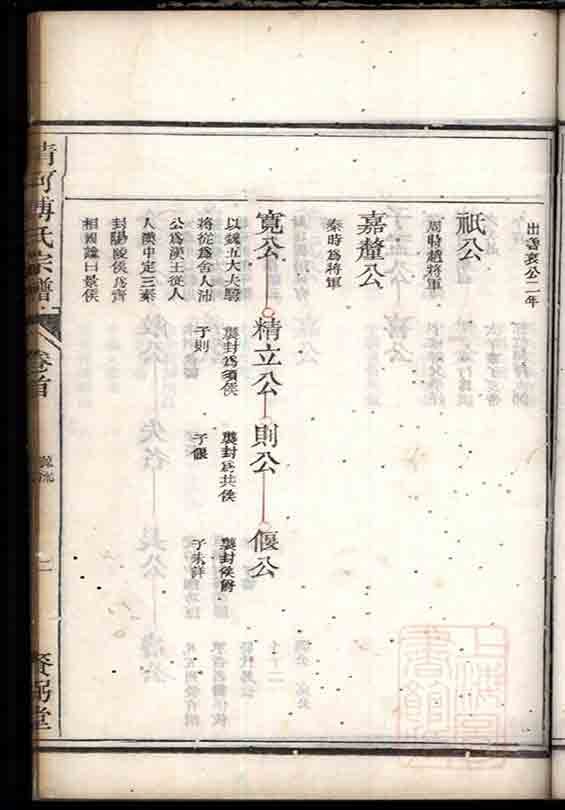 出魯哀公二年
祇公
周時趙將軍
嘉釐公
秦時爲將軍
寬公 精立公 則公 偃公
以魏五大夫騎
將從爲舍人沛
公爲漢王從入
入漢中定三秦
封陽陵侯爲齊
相國謚曰景侯
襲封爲須侯
子則
襲封爲共侯
子偃
襲封侯爵
子未詳
清河傅氏宗譜
卷首
源流
二
賚弼堂
上海圖書館藏